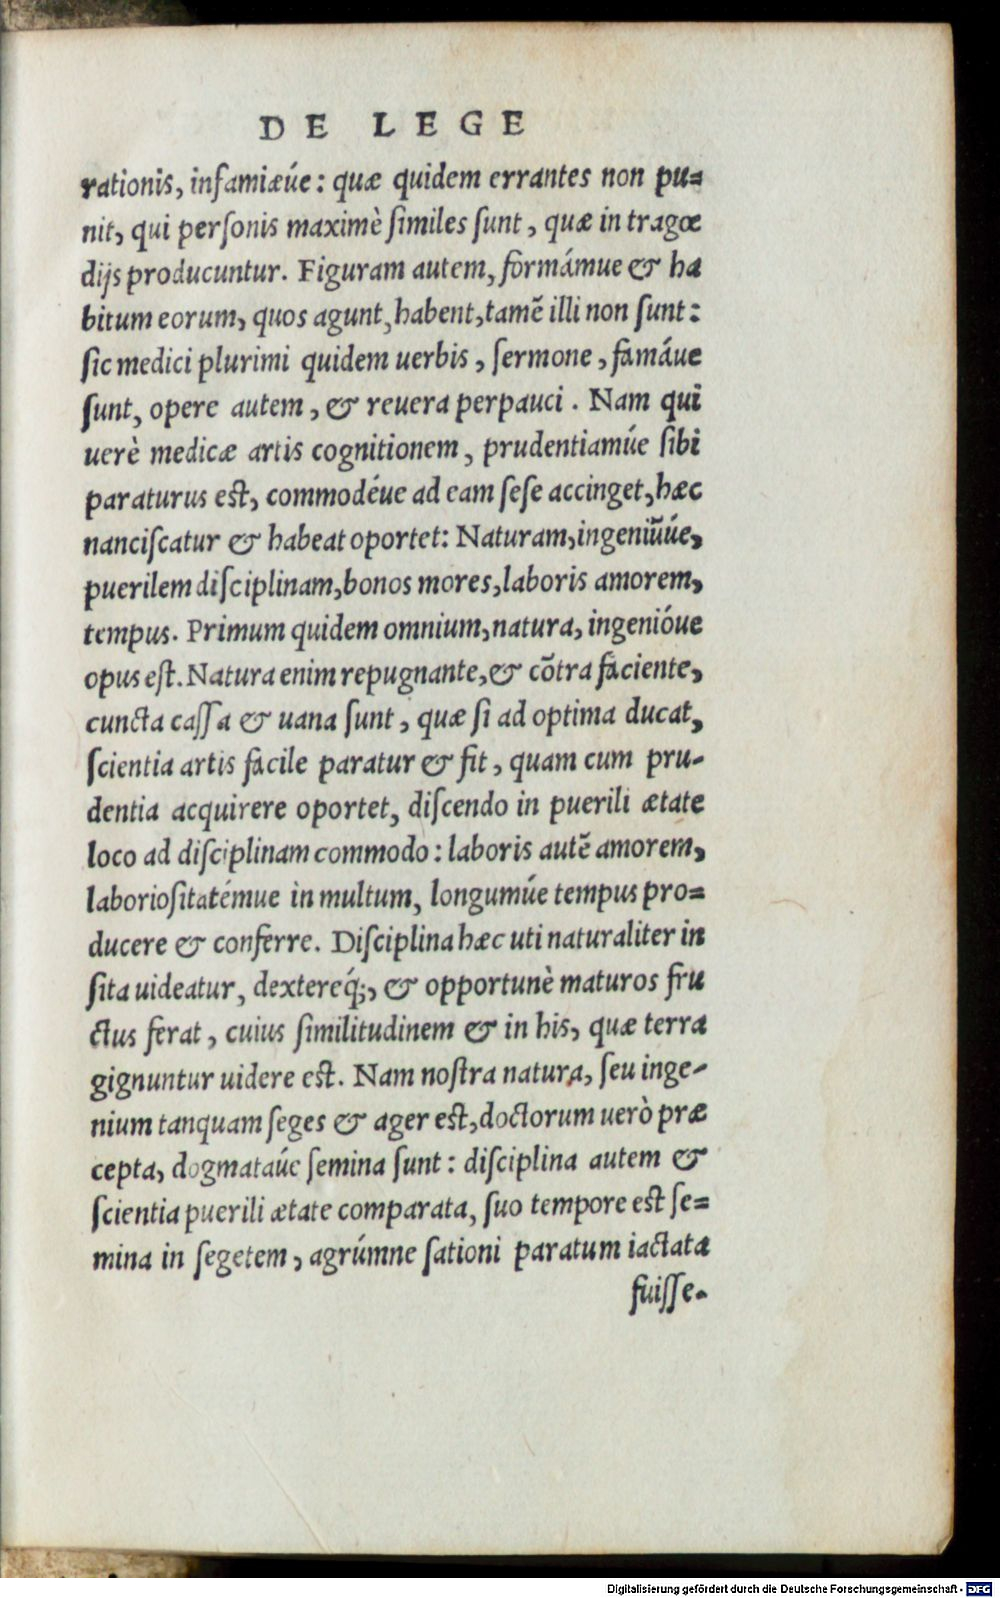 DE LEGE
rationis, infamiæúe: quæ quidem errantes non pu=
nit, qui perſonis maximè ſimiles ſunt, quæ in tragœ
dijs producuntur. Figuram autem, formámue & ha
bitum eorum, quos agunt, habent, tamẽ illi non ſunt:
ſic medici plurimi quidem uerbis, ſermone, famáue
ſunt, opere autem, & reuera perpauci. Nam qui
uerè medicæ artis cognitionem, prudentiamúe ſibi
paraturus eſt, commodéue ad eam ſeſe accinget, hæc
nanciſcatur & habeat oportet: Naturam, ingeniũúe,
puerilem diſciplinam, bonos mores, laboris amorem,
tempus. Primum quidem omnium, natura, ingenióue
opus eſt. Natura enim repugnante, & cõtra faciente,
cuncta caſſa & uana ſunt, quæ ſi ad optima ducat,
ſcientia artis facile paratur & fit, quam cum pru-
dentia acquirere oportet, diſcendo in puerili ætate
loco ad diſciplinam commodo: laboris autẽ amorem,
laborioſitatémue in multum, longumúe tempus pro=
ducere & conferre. Diſciplina hæc uti naturaliter in
ſita uideatur, dextereq́;, & opportunè maturos fru
ctus ferat, cuius ſimilitudinem & in his, quæ terra
gignuntur uidere eſt. Nam noſtra natura, ſeu inge-
nium tanquam ſeges & ager eſt, doctorum uerò præ
cepta, dogmataúe ſemina ſunt: diſciplina autem &
ſcientia puerili ætate comparata, ſuo tempore eſt ſe=
mina in ſegetem, agrúmne ſationi paratum iactata
fuiſſe.
Digitalisierung gefördert durch die Deutsche Forschungsgemeinschaft - DFG